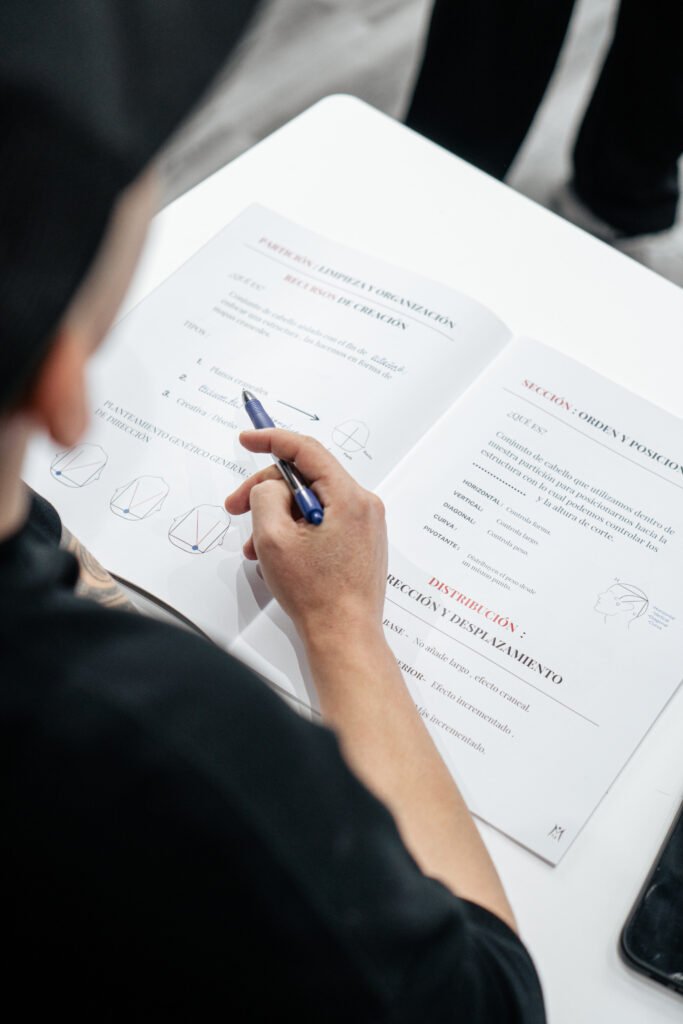 PARTICIÓN : LIMPIEZA Y ORGANIZACIÓN
RECURSOS DE CREACIÓN
¿QUÉ ES?
Conjunto de cabello aislado con el fin de
endurar una estructura , las hacemos en forma de
mapas craneales.
TIPOS :
1. Planos craneales
2.
3. Creativa - Diseño
PLANTEAMIENTO GENÉTICO GENERAL :
DE DIRECCIÓN
SECCIÓN : ORDEN Y POSICION
¿QUÉ ES?
Conjunto de cabello que utilizamos dentro de
nuestra partición para posicionarnos hacia la
estructura con lo cual podemos controlar los
y la altura de corte.
HORIZONTAL : Controla forma.
VERTICAL : Controla largo.
DIAGONAL : Controla peso.
CURVA :
PIVOTANTE : Distribuye el peso desde
un mismo punto.
DISTRIBUCIÓN :
RECCIÓN Y DESPLAZAMIENTO
BASE- No añade largo , efecto craneal.
ERIOR- Efecto incrementado .
Más incrementado.